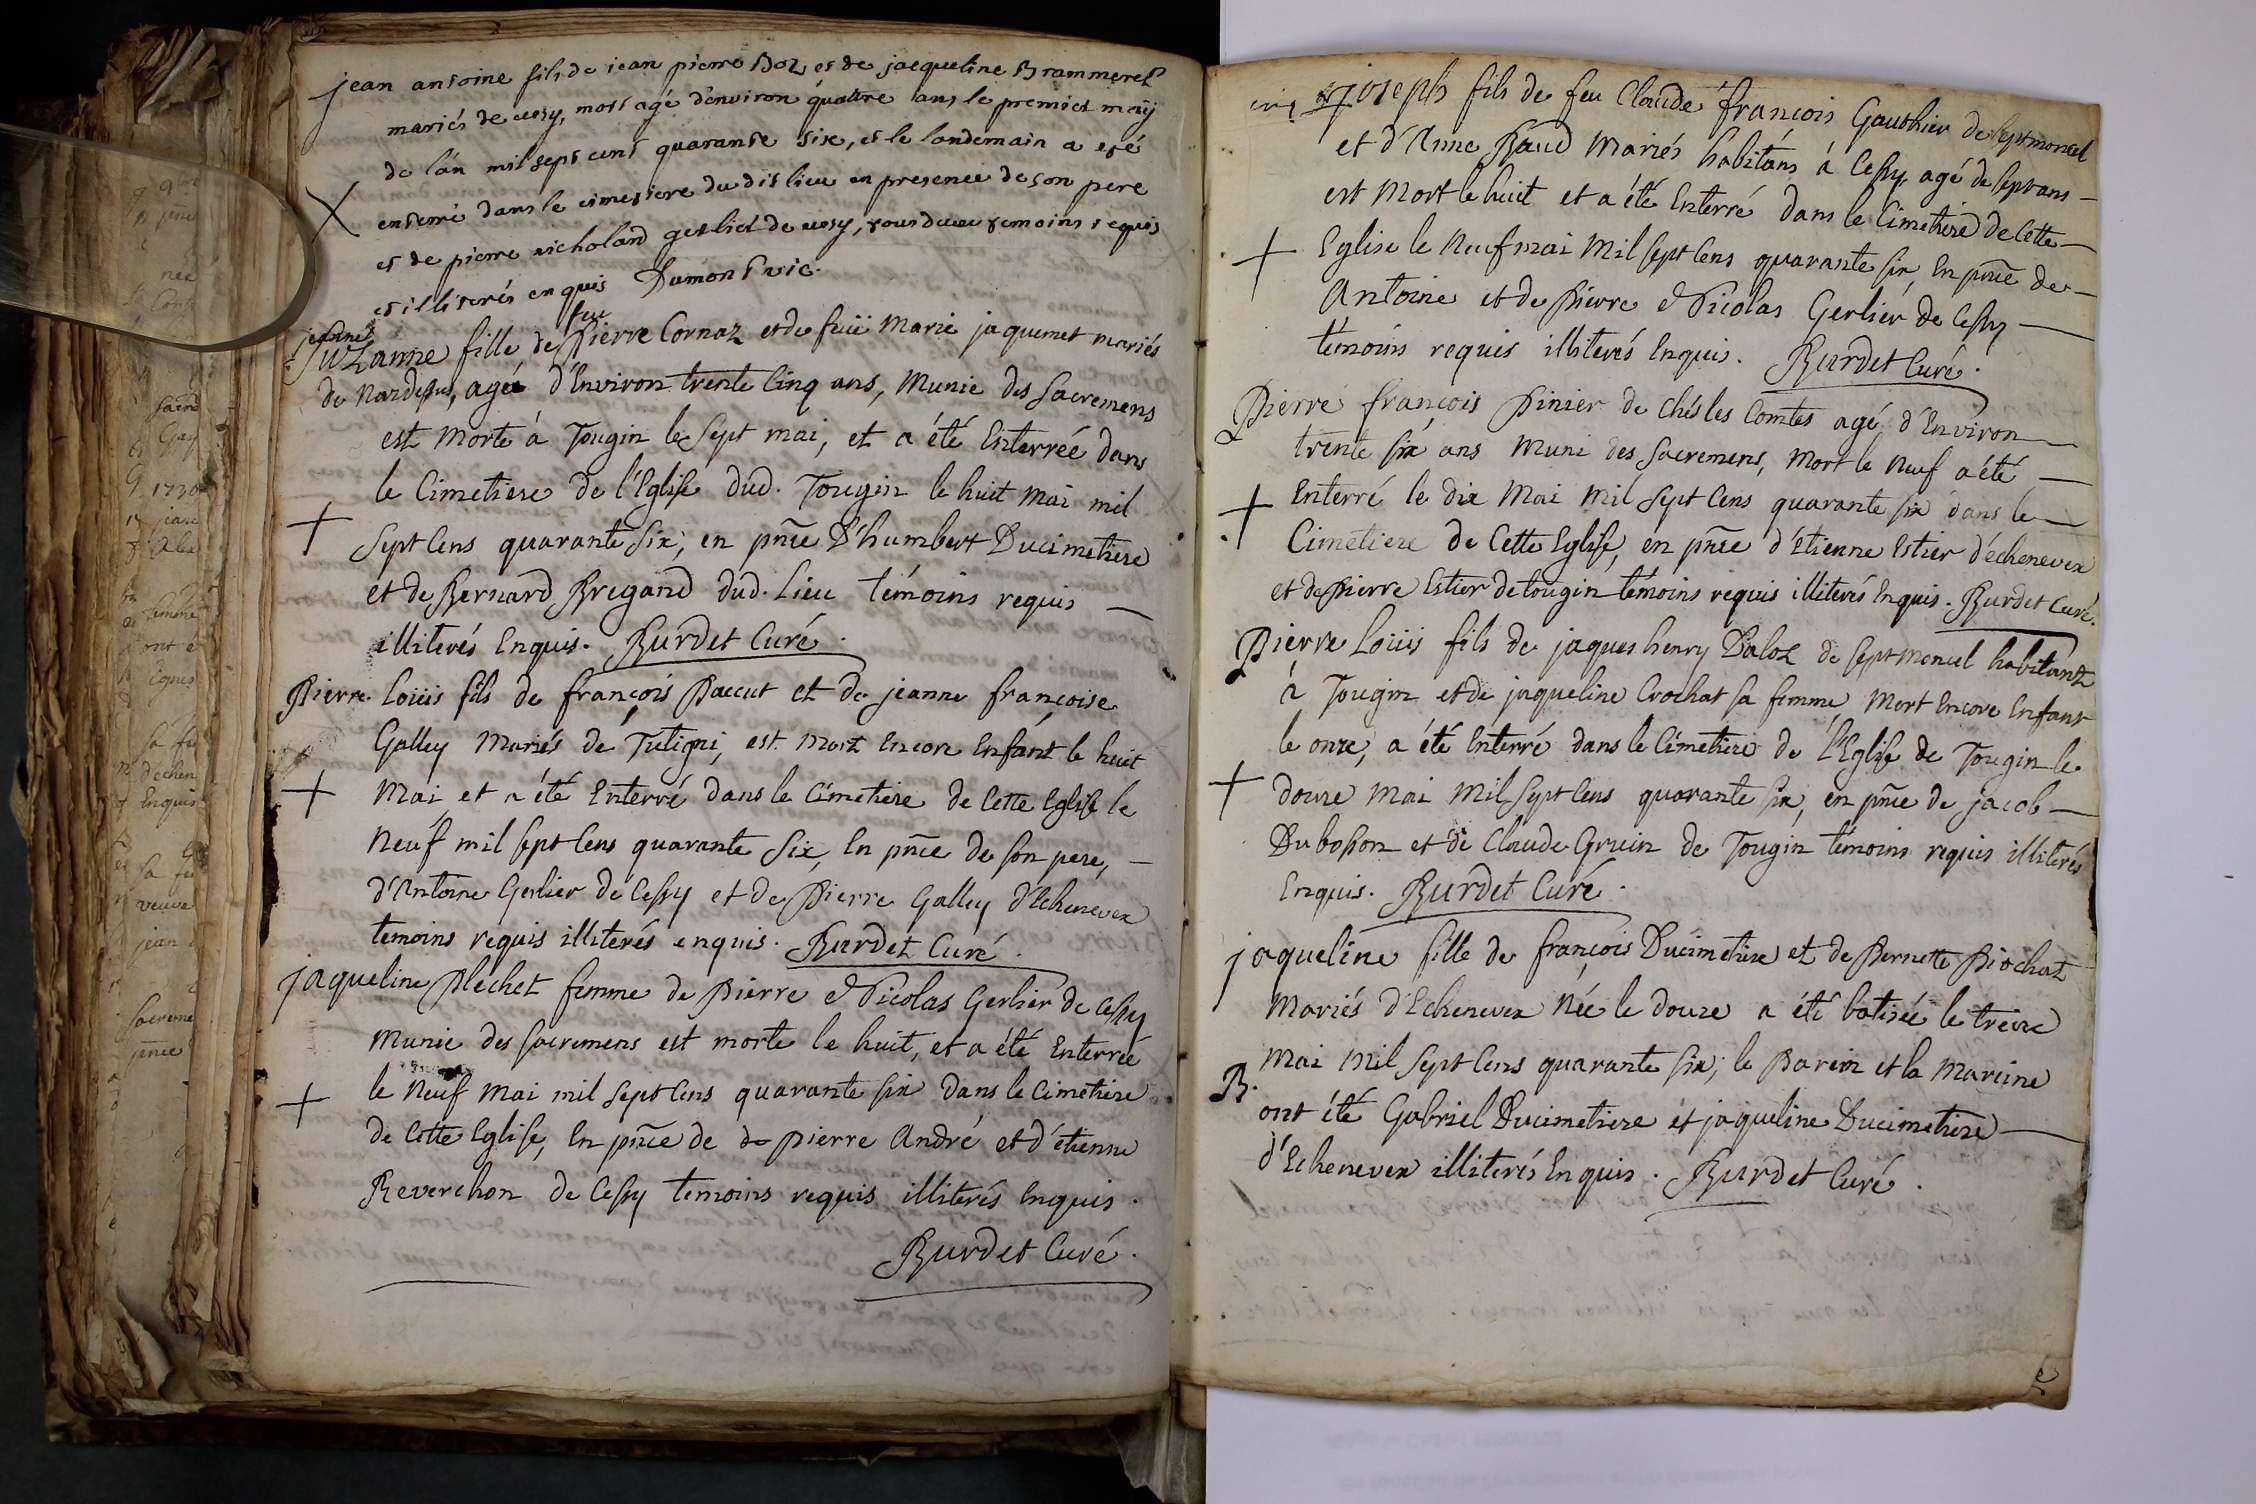 jean antoine fils de jean pierre Boz et de jacqueline Brammerel
mariés de cessy, mort agé d'environ quattre ans le premier maÿ
de l'an mil sept cent quarante six, et le londemain a eté
enterré dans le cimetiere dudit lieu en presence de son pere
et de pierre nicholard gerliet de cessy, tous deux temoins requis
et illiterés enquis Dumont vic.
jeanne
feu
Suzanne fille de Pierre Cornaz et de feüe Marie jaquemet mariés
de agée d'Environ trente Cinq ans, Munie des Sacremens
est Morte à Tougin le Sept mai, et a été Enterrée dans
le Cimetiere de l'Eglise dud. Tougin le huit mai mil
Sept Cens quarante Six, en pñce d'humbert Ducimetiere
et de Bernard Bregand dud. Lieu témoins requis
illiterés Enquis. Burdet Curé.
Pierre Loüis fils de françois Baccut et de jeanne françoise
Galley Mariés de Tutigni, est Mort Encore Enfant le huit
Mai et a été Enterré dans le Cimetiere de Cette Eglise le
Neuf mil sept Cens quarante Six, En pñce de son pere,
d'Antoine Gerlier de Cessy et de Pierre Galley d'Echenevex
temoins requis illiterés enquis. Burdet Curé.
jaqueline Plechet femme de Pierre Nicolas Gerlier de Cessy
Munie des sacremens est morte le huit, et a été Enterrée
le Neuf Mai mil Sept Cens quarante six dans le Cimetiere
de Cette Eglise, En pñce de de pierre André et d'étienne
Reverchon de Cessy temoins requis illiterés Enquis.
Burdet Curé.
joseph fils de feu Claude françois Gauthier de septmoncel
et d'Anne Baud Mariés habitans à Cessy agé de sept ans
est Mort le huit et a été Enterré dans le Cimetiere de Cette
Eglise le Neuf mai Mil sept Cens quarante six, En pñce de
Antoine et de Pierre Nicolas Gerlier de Cessy
témoins requis illiterés Enquis. Burdet Curé.
Pierre françois Pinier de Chés les Comtes agé d'Environ
trente six ans Muni des Sacremens, Mort le Neuf a été
Enterré le dix Mai Mil Sept Cens quarante six dans le
Cimetiere de Cette Eglise, en pñce d'étienne Estier d'échenevex
et de Pierre Estier de tougin témoins requis illiterés Enquis. Burdet Curé.
Pierre Loüis fils de jaques henry Daloz de Septmoncel habitant
à Tougin et de jaqueline Crochat sa femme Mort Encore Enfant
le onze, a été Enterré dans le Cimetiere de l'Eglise de Tougin le
douze Mai Mil Sept Cens quarante six, en pñce de jacob
Dubosson et de Claude Gruin de Tougin témoins requis illiterés
Enquis. Burdet Curé.
jaqueline fille de françois Ducimetiere et de Pernette Piochat
Mariés d'Echenevex Née le douze a été batisée le treize
B. Mai Mil Sept Cens quarante six; le Parein et la Mareine
ont été Gabriel Ducimetiere et jaqueline Ducimetiere
d'Echenevex illiterés Enquis. Burdet Curé.